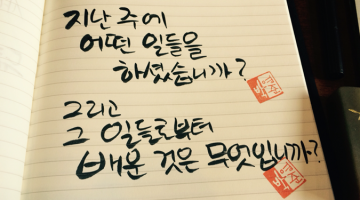 지난 주에
어떤 일들을
하셨습니까?
그리고
그 일들로부터
배운 것은 무엇입니까?